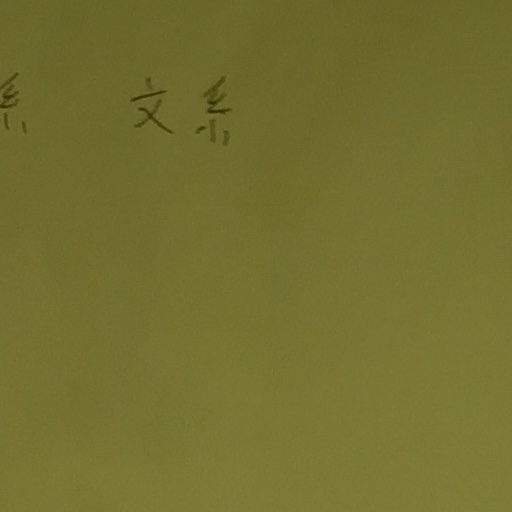 系 文系